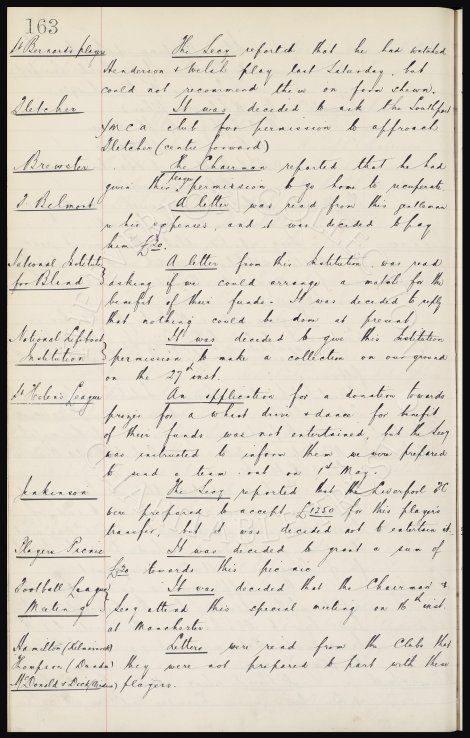 163
St Bernard's player The Secy reported that he had watched
Henderson & Welsh play last Saturday, but
could not recommend them on form shewn.
Fletcher It was decided to ask the Southport
YMCA club for permission to approach
Fletcher (centre forward)
Brewster The Chairman reported that he had
given this player permission to go home to recuperate
J. Belmont A letter was read from this gentleman
re his expenses, and it was decided to pay
him £20.
National Institute A letter from this Institution was read
for Blind asking if we could arrange a match for the
benefit of their funds. It was decided to reply
that nothing could be done at present,
National Lifeboat It was decided to give this Institution
Institution permission to make a collection on our ground
on the 27th inst.
St Helen's League An application for a donation towards
prizes for a whist drive & dance for benefit
of their funds was not entertained, but the Secy
was instructed to inform them we were prepared
to send a team out on 1st May.
Jenkinson The Secy reported that the Liverpool FC
were prepared to accept £1250 for this player's
transfer, but it was decided not to entertain it.
Players Picnic It was decided to grant a sum of
£20 towards this pic nic
Football League It was decided that the Chairman &
Meeting Secy attend this special meeting on 16th inst.
at Manchester
Hamilton (Kilmarnock) Letters were read from the Clubs that
Thompson (Dundee) they were not prepared to part with these
McDonald & Dick players.